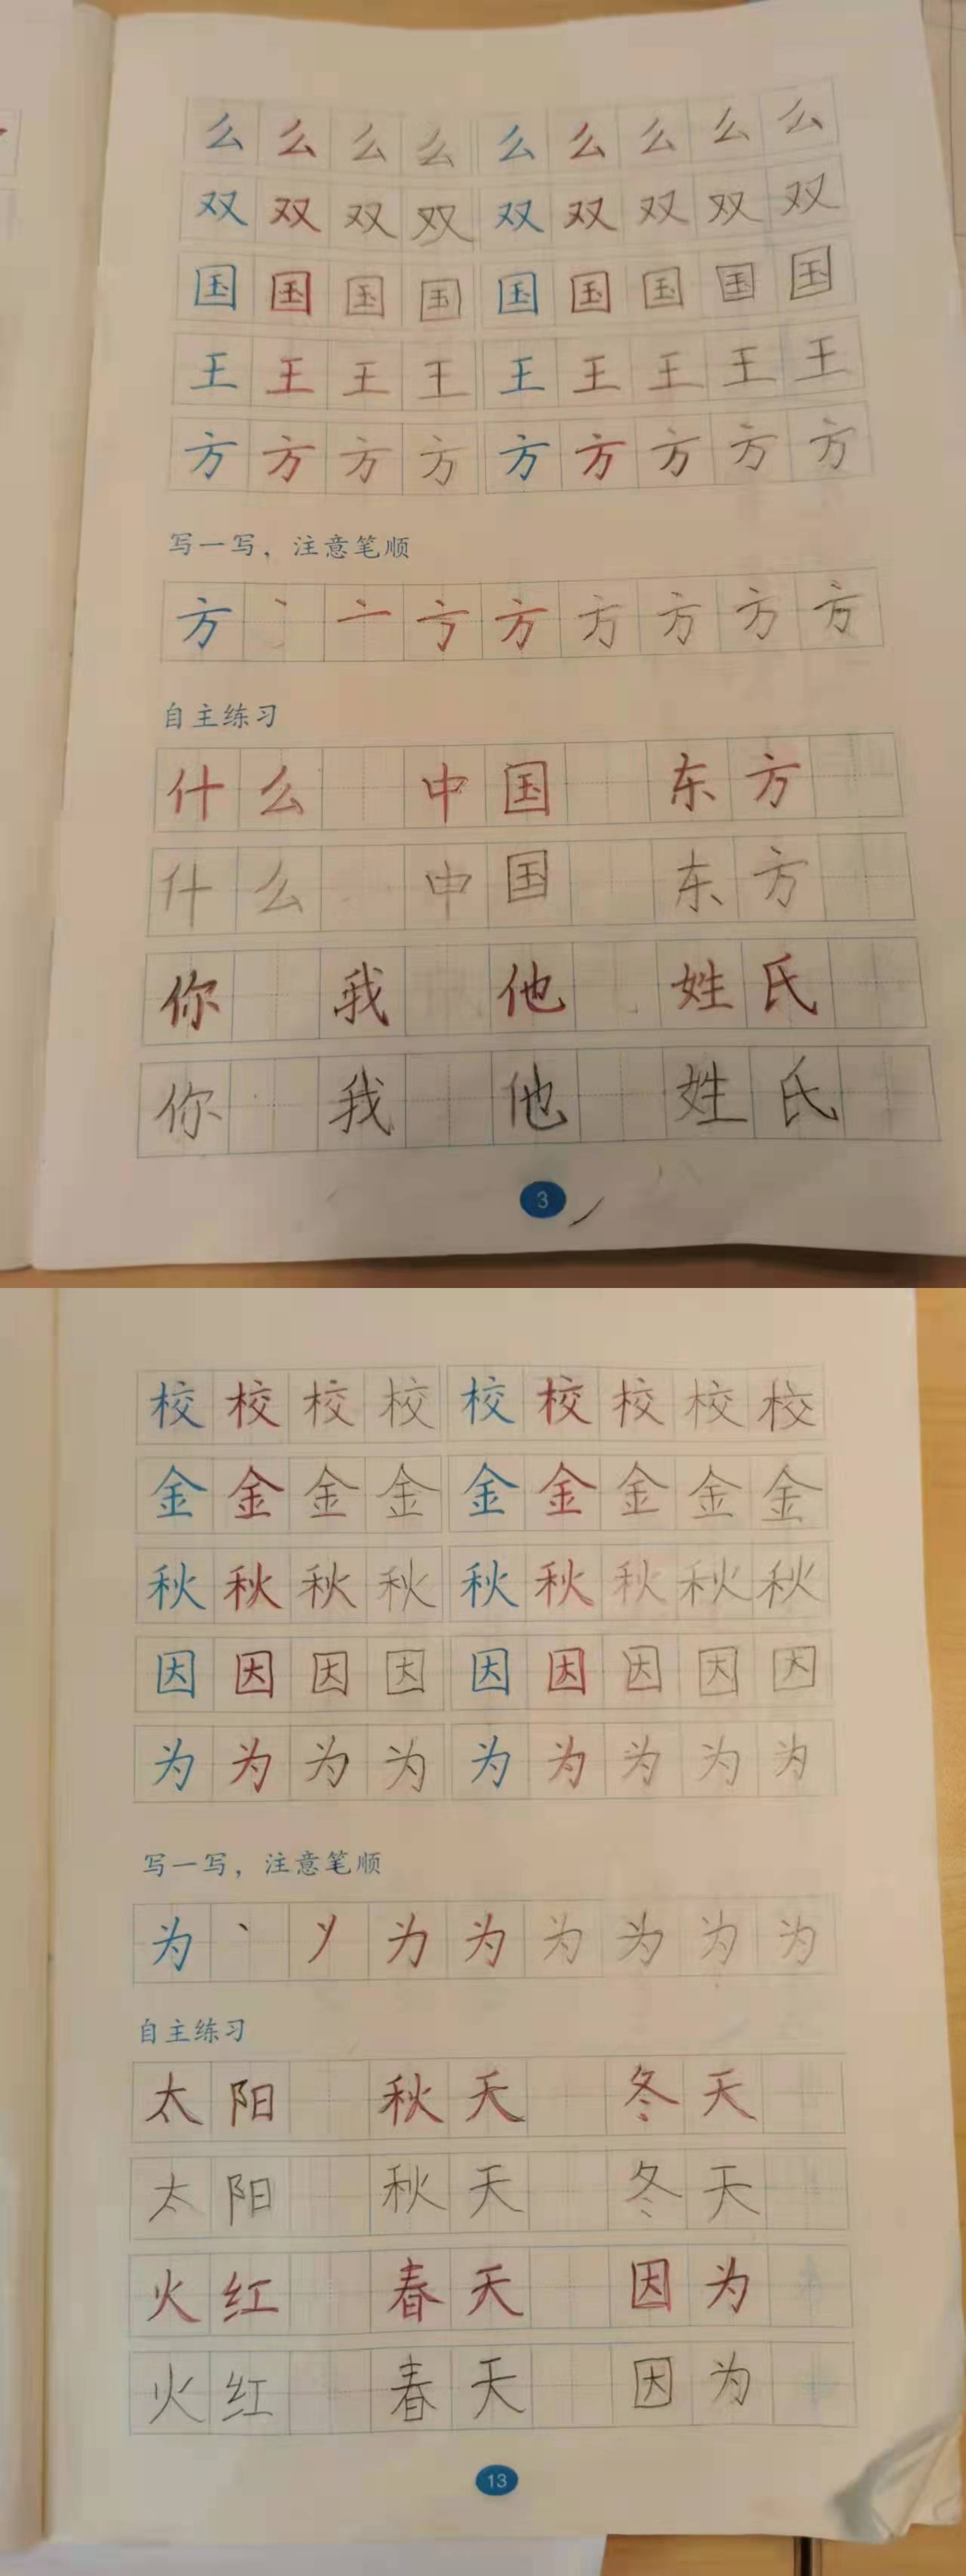 么么么么么么么么么
双双双双双双双双双
国国国国国国国国国
王王王王王王王王王
方方方方方方方方方
写一写，注意笔顺
方丶亠方方方方方
自主练习
什么 中国 东方
什么 中国 东方
你 我 他 姓氏
你 我 他 姓氏
3
校校校校校校校校校
金金金金金金金金金
秋秋秋秋秋秋秋秋秋
因因因因因因因因因
为为为为为为为为为
写一写，注意笔顺
为丶丷为为为为为为
自主练习
太阳 秋天 冬天
太阳 秋天 冬天
火红 春天 因为
火红 春天 因为
13